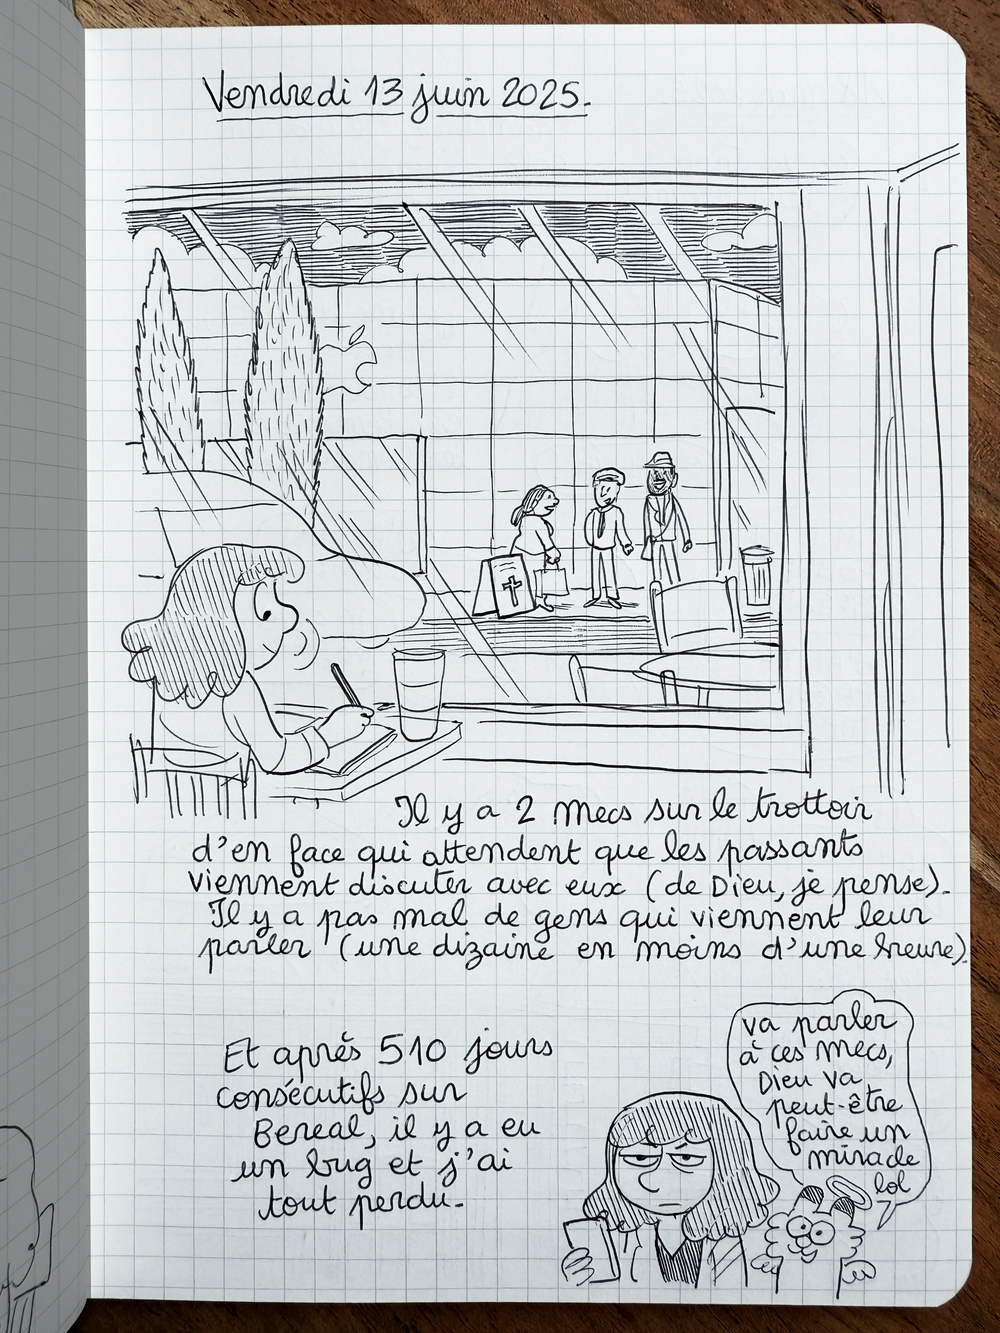 Vendredi 13 juin 2025.
Il y a 2 mecs sur le trottoir
d'en face qui attendent que les passants
viennent discuter avec eux (de Dieu, je pense).
Il y a pas mal de gens qui viennent leur
parler (une dizaine en moins d'une heure).
Et après 510 jours
consécutifs sur
Bereal, il y a eu
un bug et j'ai
tout perdu.
va parler
à ces mecs,
Dieu va
peut-être
faire un
miracle
lol